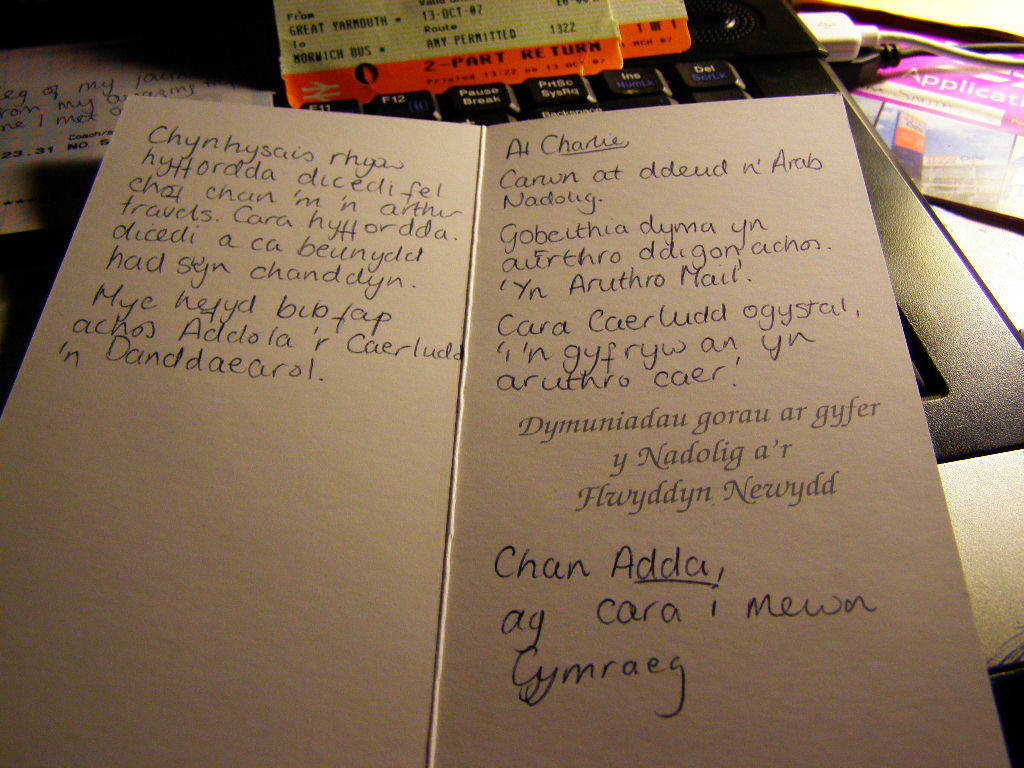 From
GREAT YARMOUTH *
To
NORWICH BUS *
13-OCT-07
Route
ANY PERMITTED 1322
2-PART RETURN
Printed 13:22 on 13-OCT-07
1 OF 1
F11 F12 Pause Break PrtSc SysRq Ins NumLk Del ScrLk
Backspace
of my
from my amazing
I met
23.31 NO
Applicati
Chynhysais rhyw
hyffordda dicedi fel
chan 'm 'n arthur
travels. Cara hyffordda.
dicedi a ca beunydd
had syn chanddyn.
Mye hefyd bib fap
achos Addola 'r Caerludd
'n Danddaearol.
At Charlie,
Carwn at ddeud n' Arab
Nadolig.
Gobeithia dyma yn
aurthro ddigon achos.
'Yn Aruthro Mail'.
Cara Caerludd ogystal,
'i 'n gyfryw an yn
aruthro caer!
Dymuniadau gorau ar gyfer
y Nadolig a'r
Flwyddyn Newydd
Chan Adda,
ag cara i mewn
Gymraeg